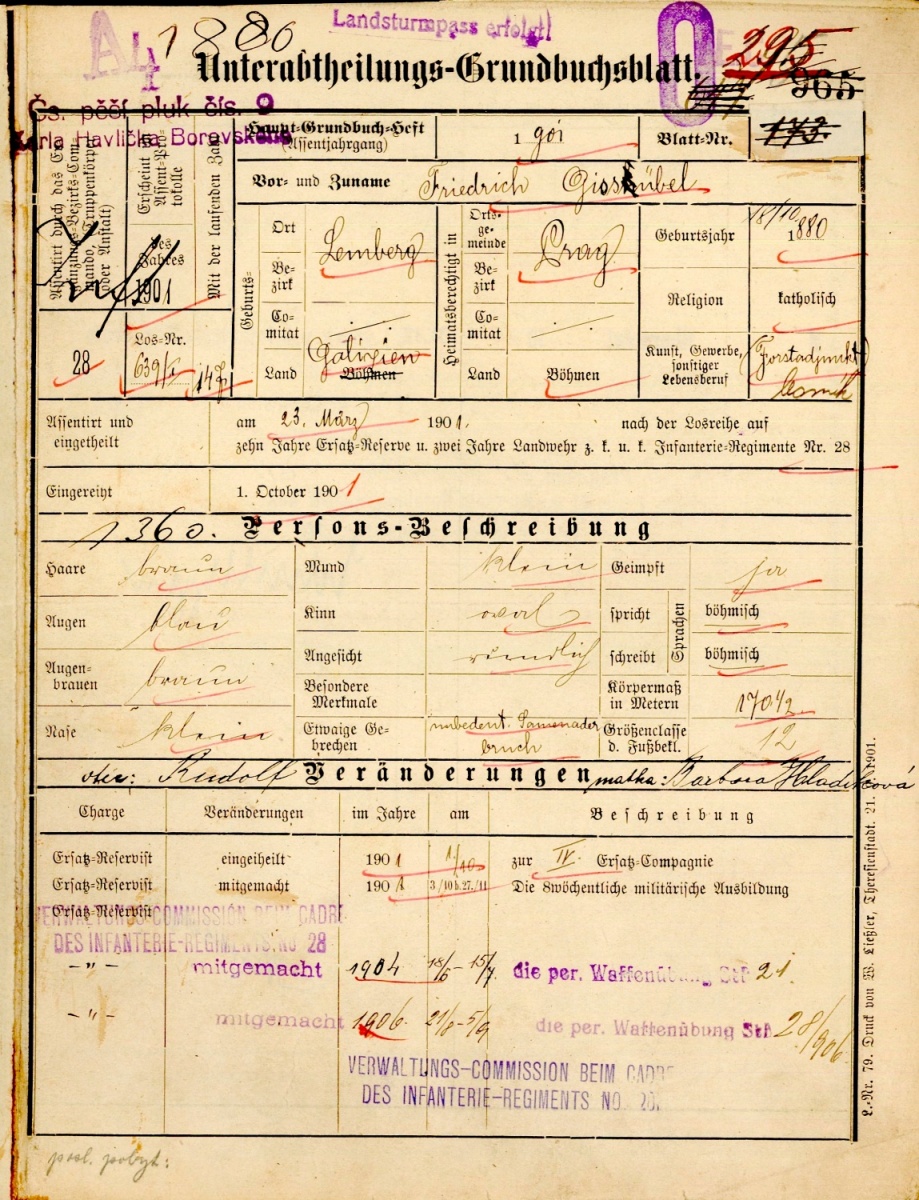 1880
Landsturmpass erfolgt!
Unterabtheilungs-Grundbuchsblatt.
295
965
Čs. pěší pluk čís. 9
Karla Havlíčka Borovského
Haupt-Grundbuch-Heft
(Assentjahrgang)
1901
Blatt-Nr.
173.
Vor- und Zuname Friedrich Gisskübel
Assentirt durch das Ergänzungs-Bezirks-Commando, Truppenkörper (oder Anstalt)
28
Erscheint im Assent-Protokolle
des Jahres
1901
Mit der laufenden Zahl
Los-Nr.
Geburts-
Ort Lemberg
Bezirk
Comitat
Land Galizien
Böhmen
Heimatsberechtigt in
Ortsgemeinde Prag
Bezirk
Comitat
Land Böhmen
Geburtsjahr 18/10 1880
Religion katholisch
Kunst, Gewerbe, sonstiger Lebensberuf (Forstadjunkt)
Assentirt und eingetheilt
am 23. März 1901. nach der Losreihe auf
zehn Jahre Ersatz-Reserve u. zwei Jahre Landwehr z. k. u. k. Infanterie-Regimente Nr. 28
Eingereiht 1. October 1901
1360. Persons-Beschreibung
Haare braun
Mund klein
Geimpft ja
Augen blau
Kinn oval
spricht Sprachen böhmisch
Augenbrauen braun
Angesicht rundlich
schreibt böhmisch
Besondere Merkmale
Körpermaß in Metern 170 1/2
Nase klein
Etwaige Gebrechen unbedeut. Samenaderbruch
Größenclasse d. Fußbekl. 12
otec: Rudolf Veränderungen matka: Barbora Hladíková
Charge Veränderungen im Jahre am Beschreibung
Ersatz-Reservist eingetheilt 1901 1/10 zur IV. Ersatz-Compagnie
Ersatz-Reservist mitgemacht 1901 3/10 b. 27./11 Die 8wöchentliche militärische Ausbildung
Ersatz-Reservist
VERWALTUNGS-COMMISSION BEIM CADRE
DES INFANTERIE-REGIMENTS No 28
-"- mitgemacht 1904 18/6-15/7 die per. Waffenübung Stf. 21
-"- mitgemacht 1906. die per. Waffenübung Stf. 28/906
VERWALTUNGS-COMMISSION BEIM CADRE
DES INFANTERIE-REGIMENTS No. 28.
posl. pobyt:
L.-Nr. 79. Druck von W. Ließler, Theresienstadt. 21. 1. 1901.